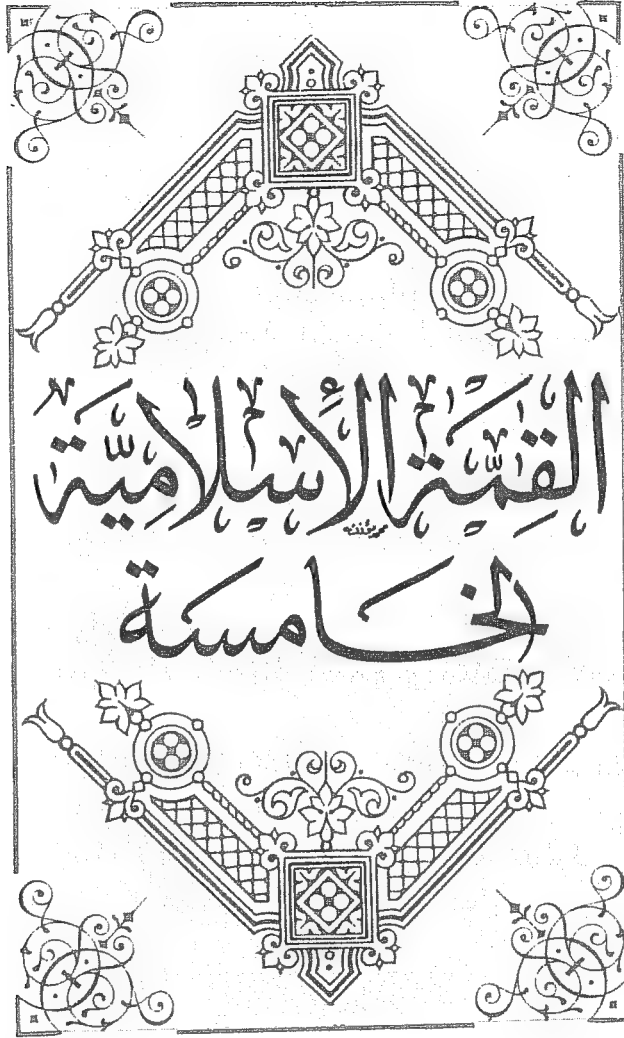 القِمَّة الإِسْلَامِيَّة
الخامسة